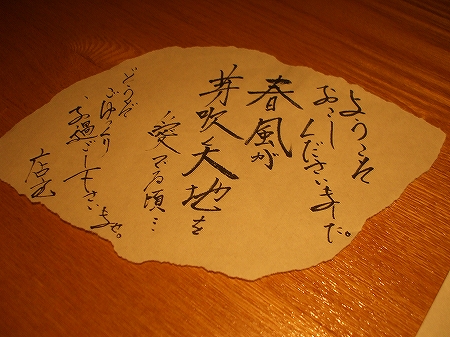 ようこそ
おこしくださいました。
春風が
芽吹く天地を
愛でる頃…
どうぞ
ごゆっくり
お過ごし下さいませ。
店主